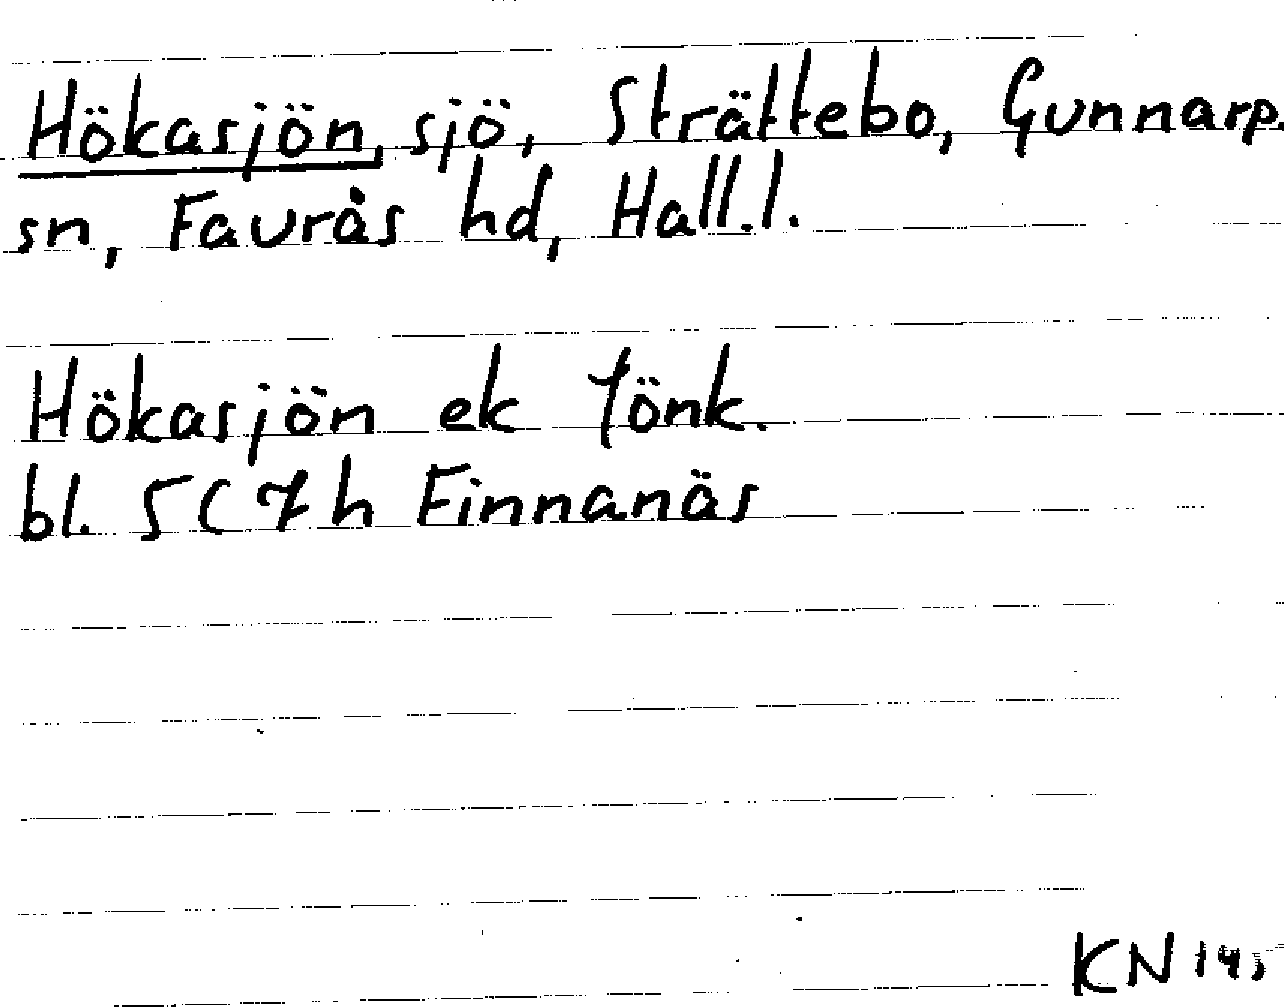 Hökasjön, sjö, Strättebo, Gunnarp.
sn, Faurås hd, Hall.l.
Hökasjön ek Jönk.
bl. 5C 7h Finnanäs
KN